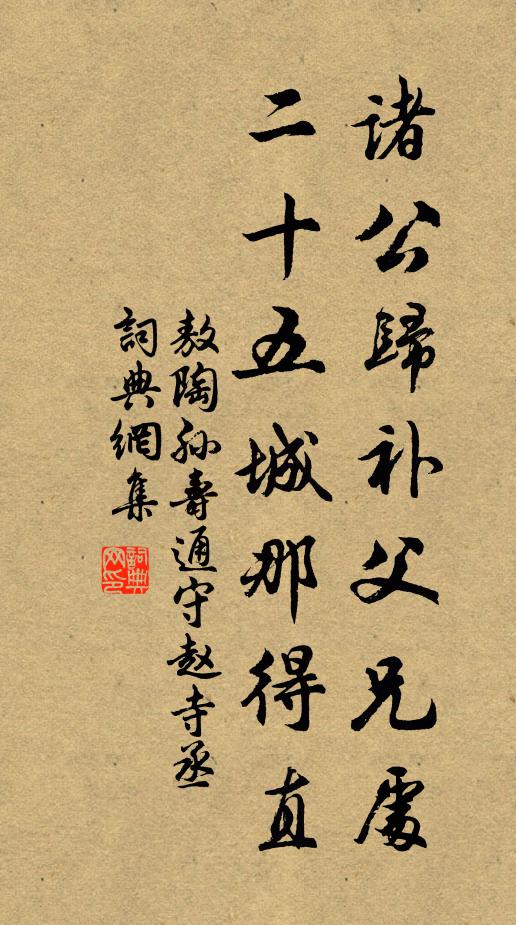 諸公歸补父兄處
二十五城那得直
敖陶孙壽通守赵寺丞
詞典網集
詞典網印